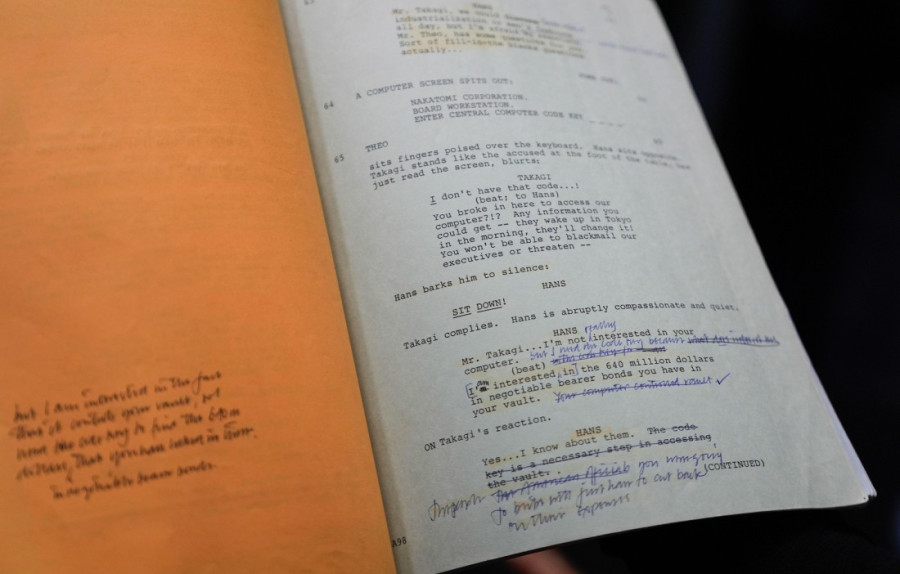 Mr. Takagi, we could discuss
industrialization
all day, but I'm afraid my
Mr. Theo, has some questions for you
Sort of fill-in-the blanks questions
actually...
64 A COMPUTER SCREEN SPITS OUT:
NAKATOMI CORPORATION.
BOARD WORKSTATION.
ENTER CENTRAL COMPUTER CODE KEY _ _ _ _
65 THEO
sits fingers poised over the keyboard. Hans sits opposite.
Takagi stands like the accused at the foot of the table, has
just read the screen, blurts:
TAKAGI
I don't have that code...!
(beat; to Hans)
You broke in here to access our
computer?!? Any information you
could get -- they wake up in Tokyo
in the morning, they'll change it!
You won't be able to blackmail our
executives or threaten --
Hans barks him to silence:
HANS
SIT DOWN!
Takagi complies. Hans is abruptly compassionate and quiet.
HANS
really
Mr. Takagi...I'm not interested in your
computer. but I need the code key because
(beat)
I am interested in the 640 million dollars
in negotiable bearer bonds you have in
your vault. Your computer controls vault
ON Takagi's reaction.
HANS
Yes...I know about them. The code
key is a necessary step in accessing
the vault.
(CONTINUED)
you were going
to build will just have to cut back
on their expenses
but I am interested in the fact
that it controls your vault,
need the code key to find the 640
that you have in your
in negotiable bearer bonds.
A98